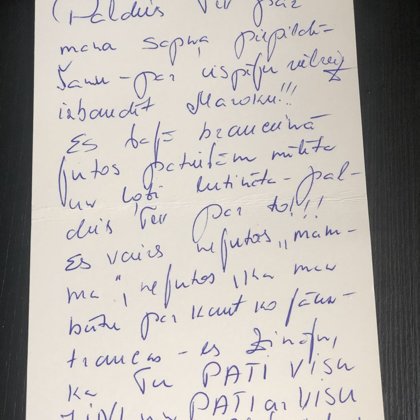 (Paldies Tev par
mana sapņa piepildī-
šanu - par iespēju vēlreiz
izbaudīt Maroku!!!
Es šajā braucienā
jutos patiešām mīlēta
un ļoti lutināta - pal-
dies Tev par to!!!
Es vairs nejutos "mam-
ma", nejutos, ka man
būtu par kaut ko jāuz-
traucas - es zināju,
ka Tu PATI VISU
ZINI un PATI ar VISU